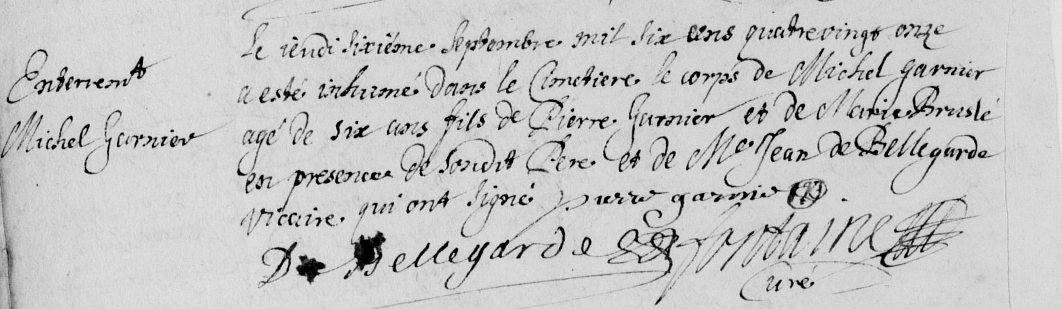 Enterremt
Michel Garnier
Le ieudi sixiéme Septembre mil six cens quatrevingt onze
a esté inhumé dans le Cimetiere le corps de Michel garnier
agé de six ans fils de Pierre Garnier et de Marie Bruslé
en presence de sondit Pere et de Me Jean de Bellegarde
vicaire qui ont signé pierre garnie
De Bellegarde fontaine
Curé